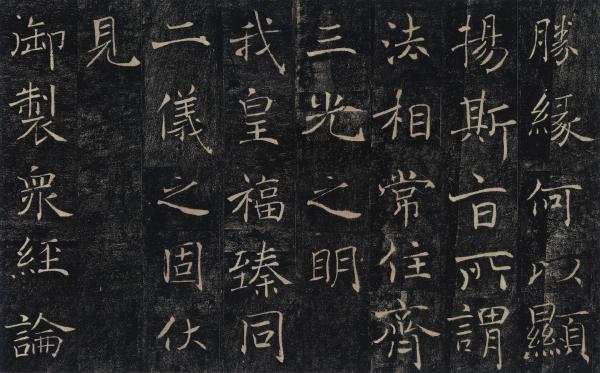 勝緣何以顯
揚斯旨所謂
法相常住齊
三光之明
我皇福臻同
二儀之固伏
見
御製衆經論